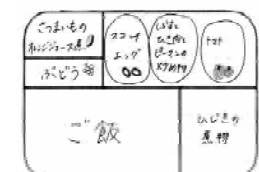 さつまいもの
オレンジジュース煮
ぶどう
スコッチ
エッグ
ひき肉と
ピーマンの
トマト
ご飯
ひじきの
煮物